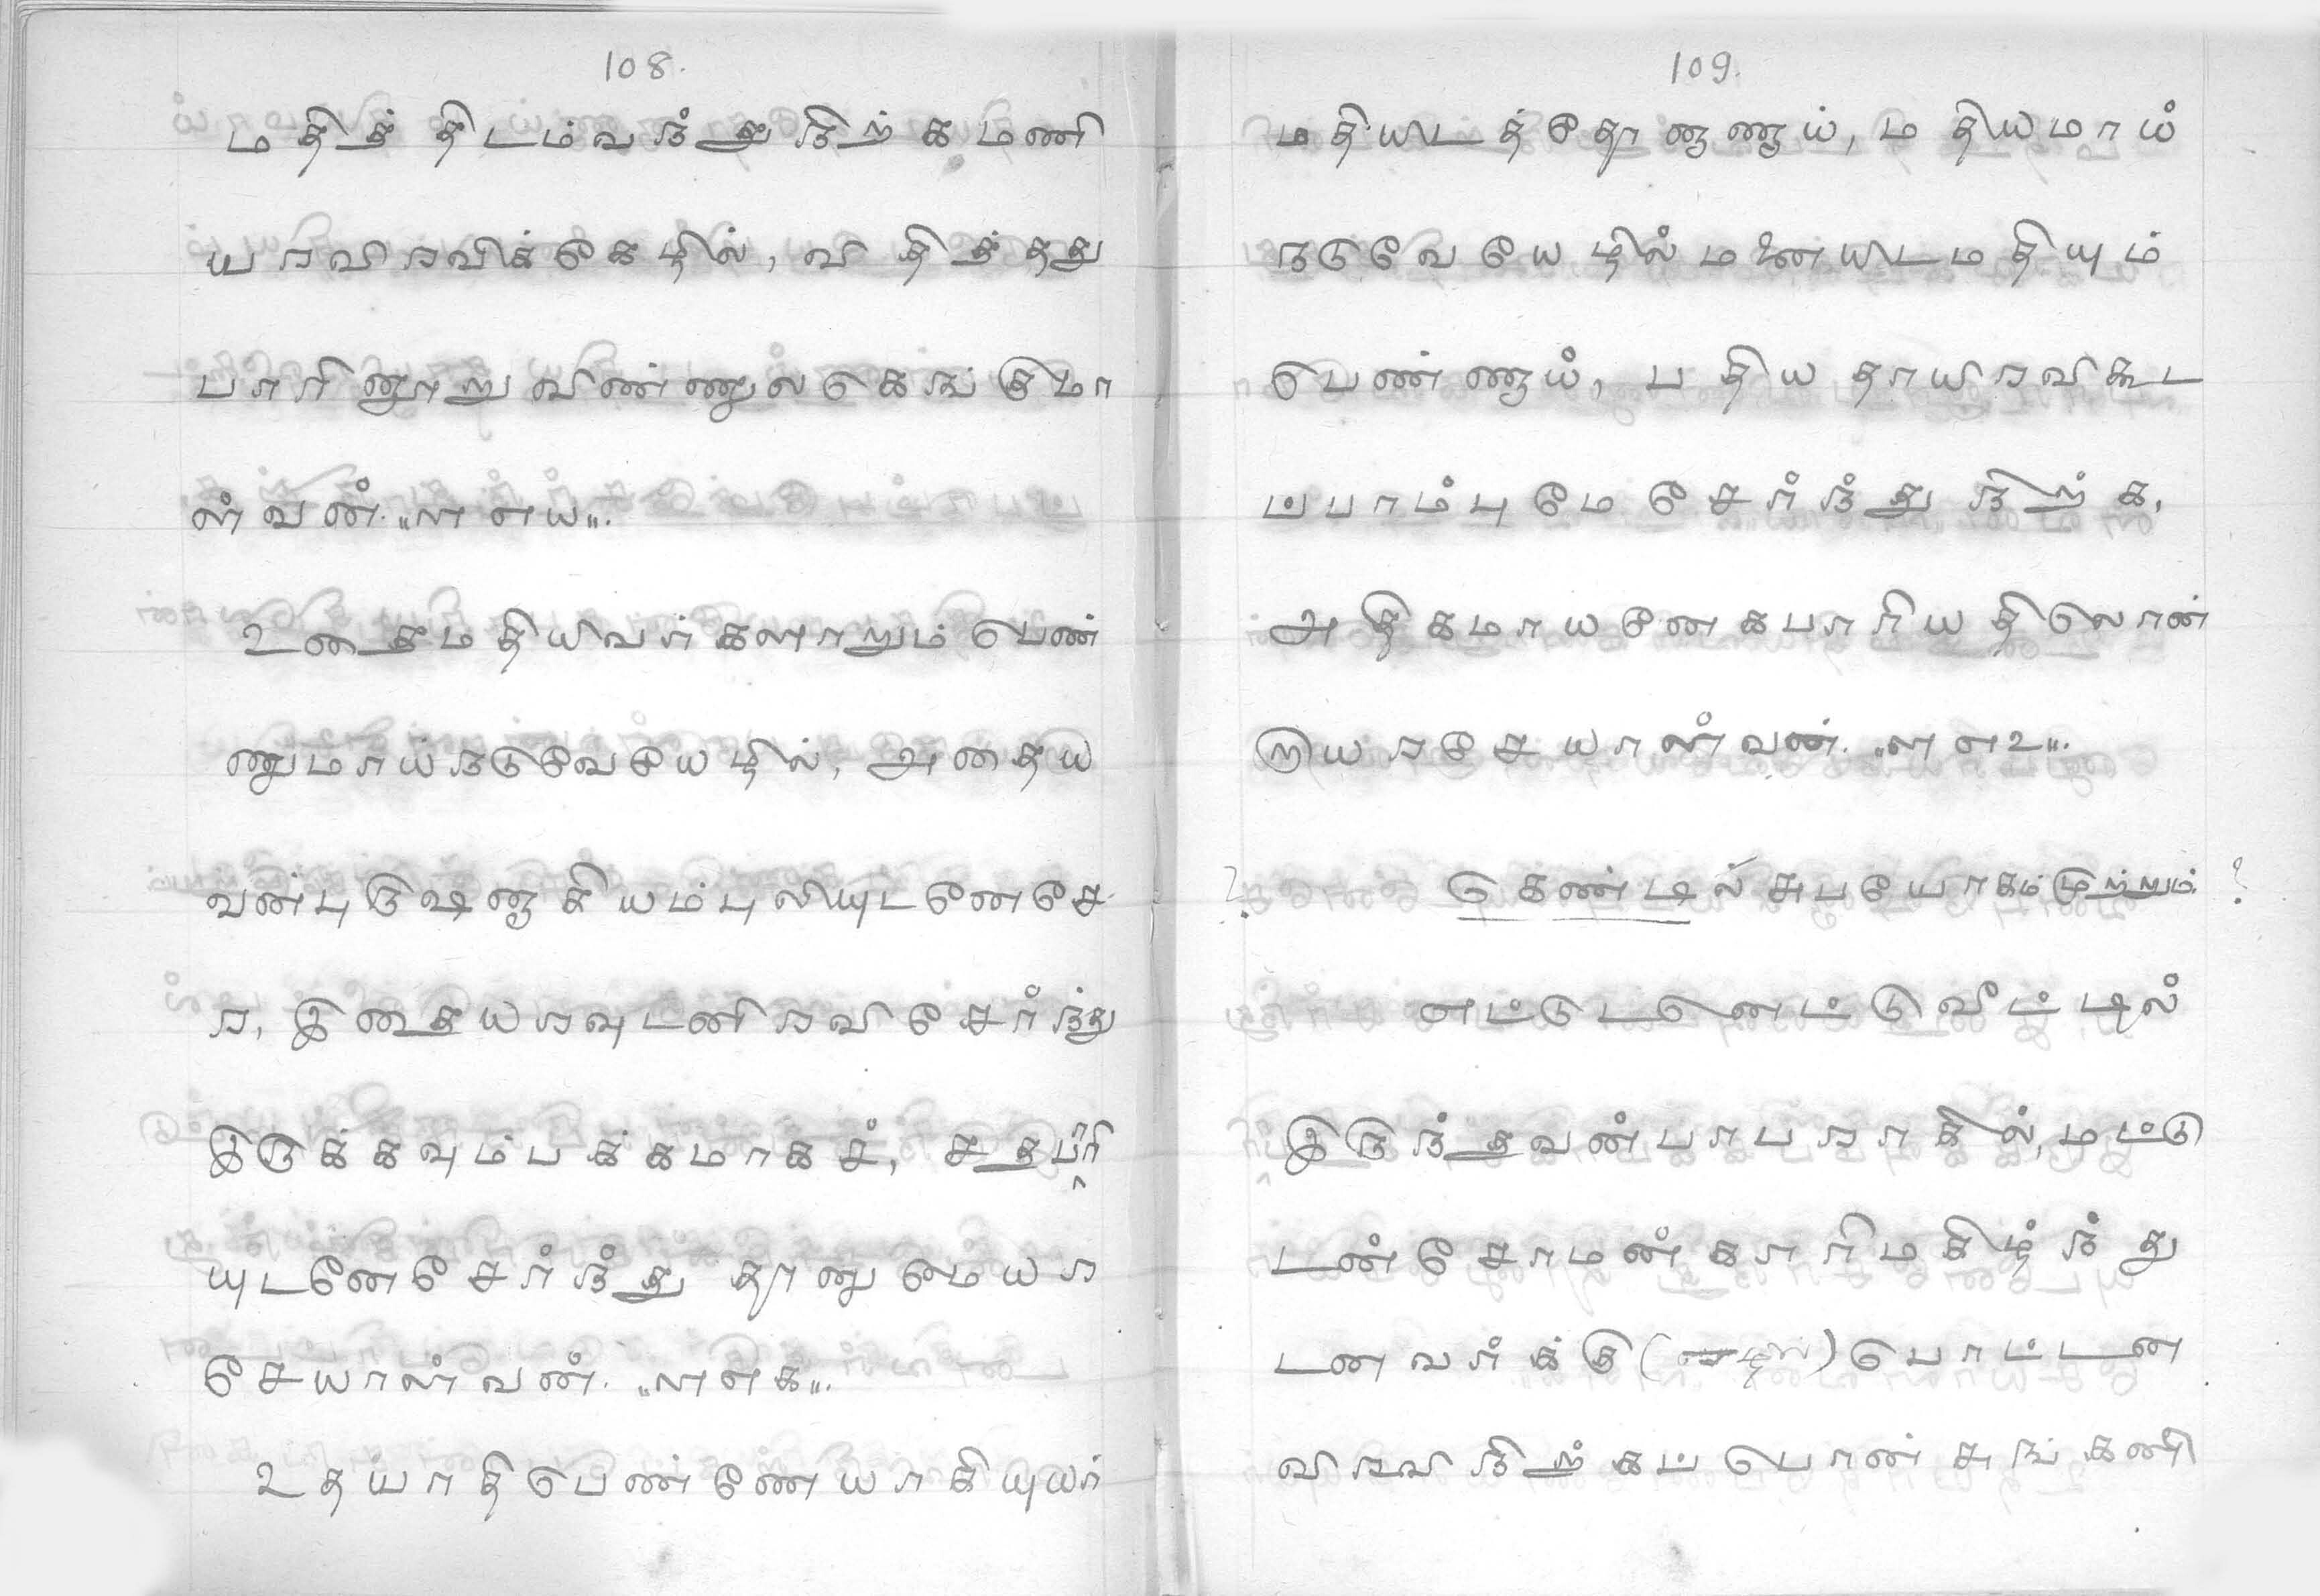 108.
மதித் திடம்வந்து நிற் கமணி
யரவிரவிக்கேழில், வி தித்தது
பாரினூறு விண்ணுலகெங்குமா
ள்வன். "ளஎய".
உதைமதியிவர்களாறும் பெண்
ணுமாய்நடுவேயேழில், அதைய
வன்புருஷனாகியம்புலியுடனேசே
ர, இதையரவுடனிரவிசேர்ந்து
இருக்கவும்பக்கமாகச், சதபரி
யுடனேசேர்ந்து தானுமையர
சேயாள்வன். "ளஎக".
உதயாதிபெண்ணேயாகியுயர்
109.
மதியிடத்தோனாய், ம தியமாய்
நடுவேயேழில் மனையிடமதியும்
பெண்ணாய், பதிய தாயிரவிகூட
ப்பாம்புமே சேர்ந்து நிற்க,
அதிகமாயனேகபாரியதிலொன்
றியரசேயாள்வன். "ளஎ௨".
? கெண்டில்சுபயோகம்முற்றும். ?
எட்டுடனெட்டுவீட்டில்
இருந்தவன்பாபராகில், மட்டு
டன்சோமன்காரிமகிழ்ந்து
டனவர்க்கு ( ) பொட்டன
விரவிநிற்கப் பொன்சுங்கனி